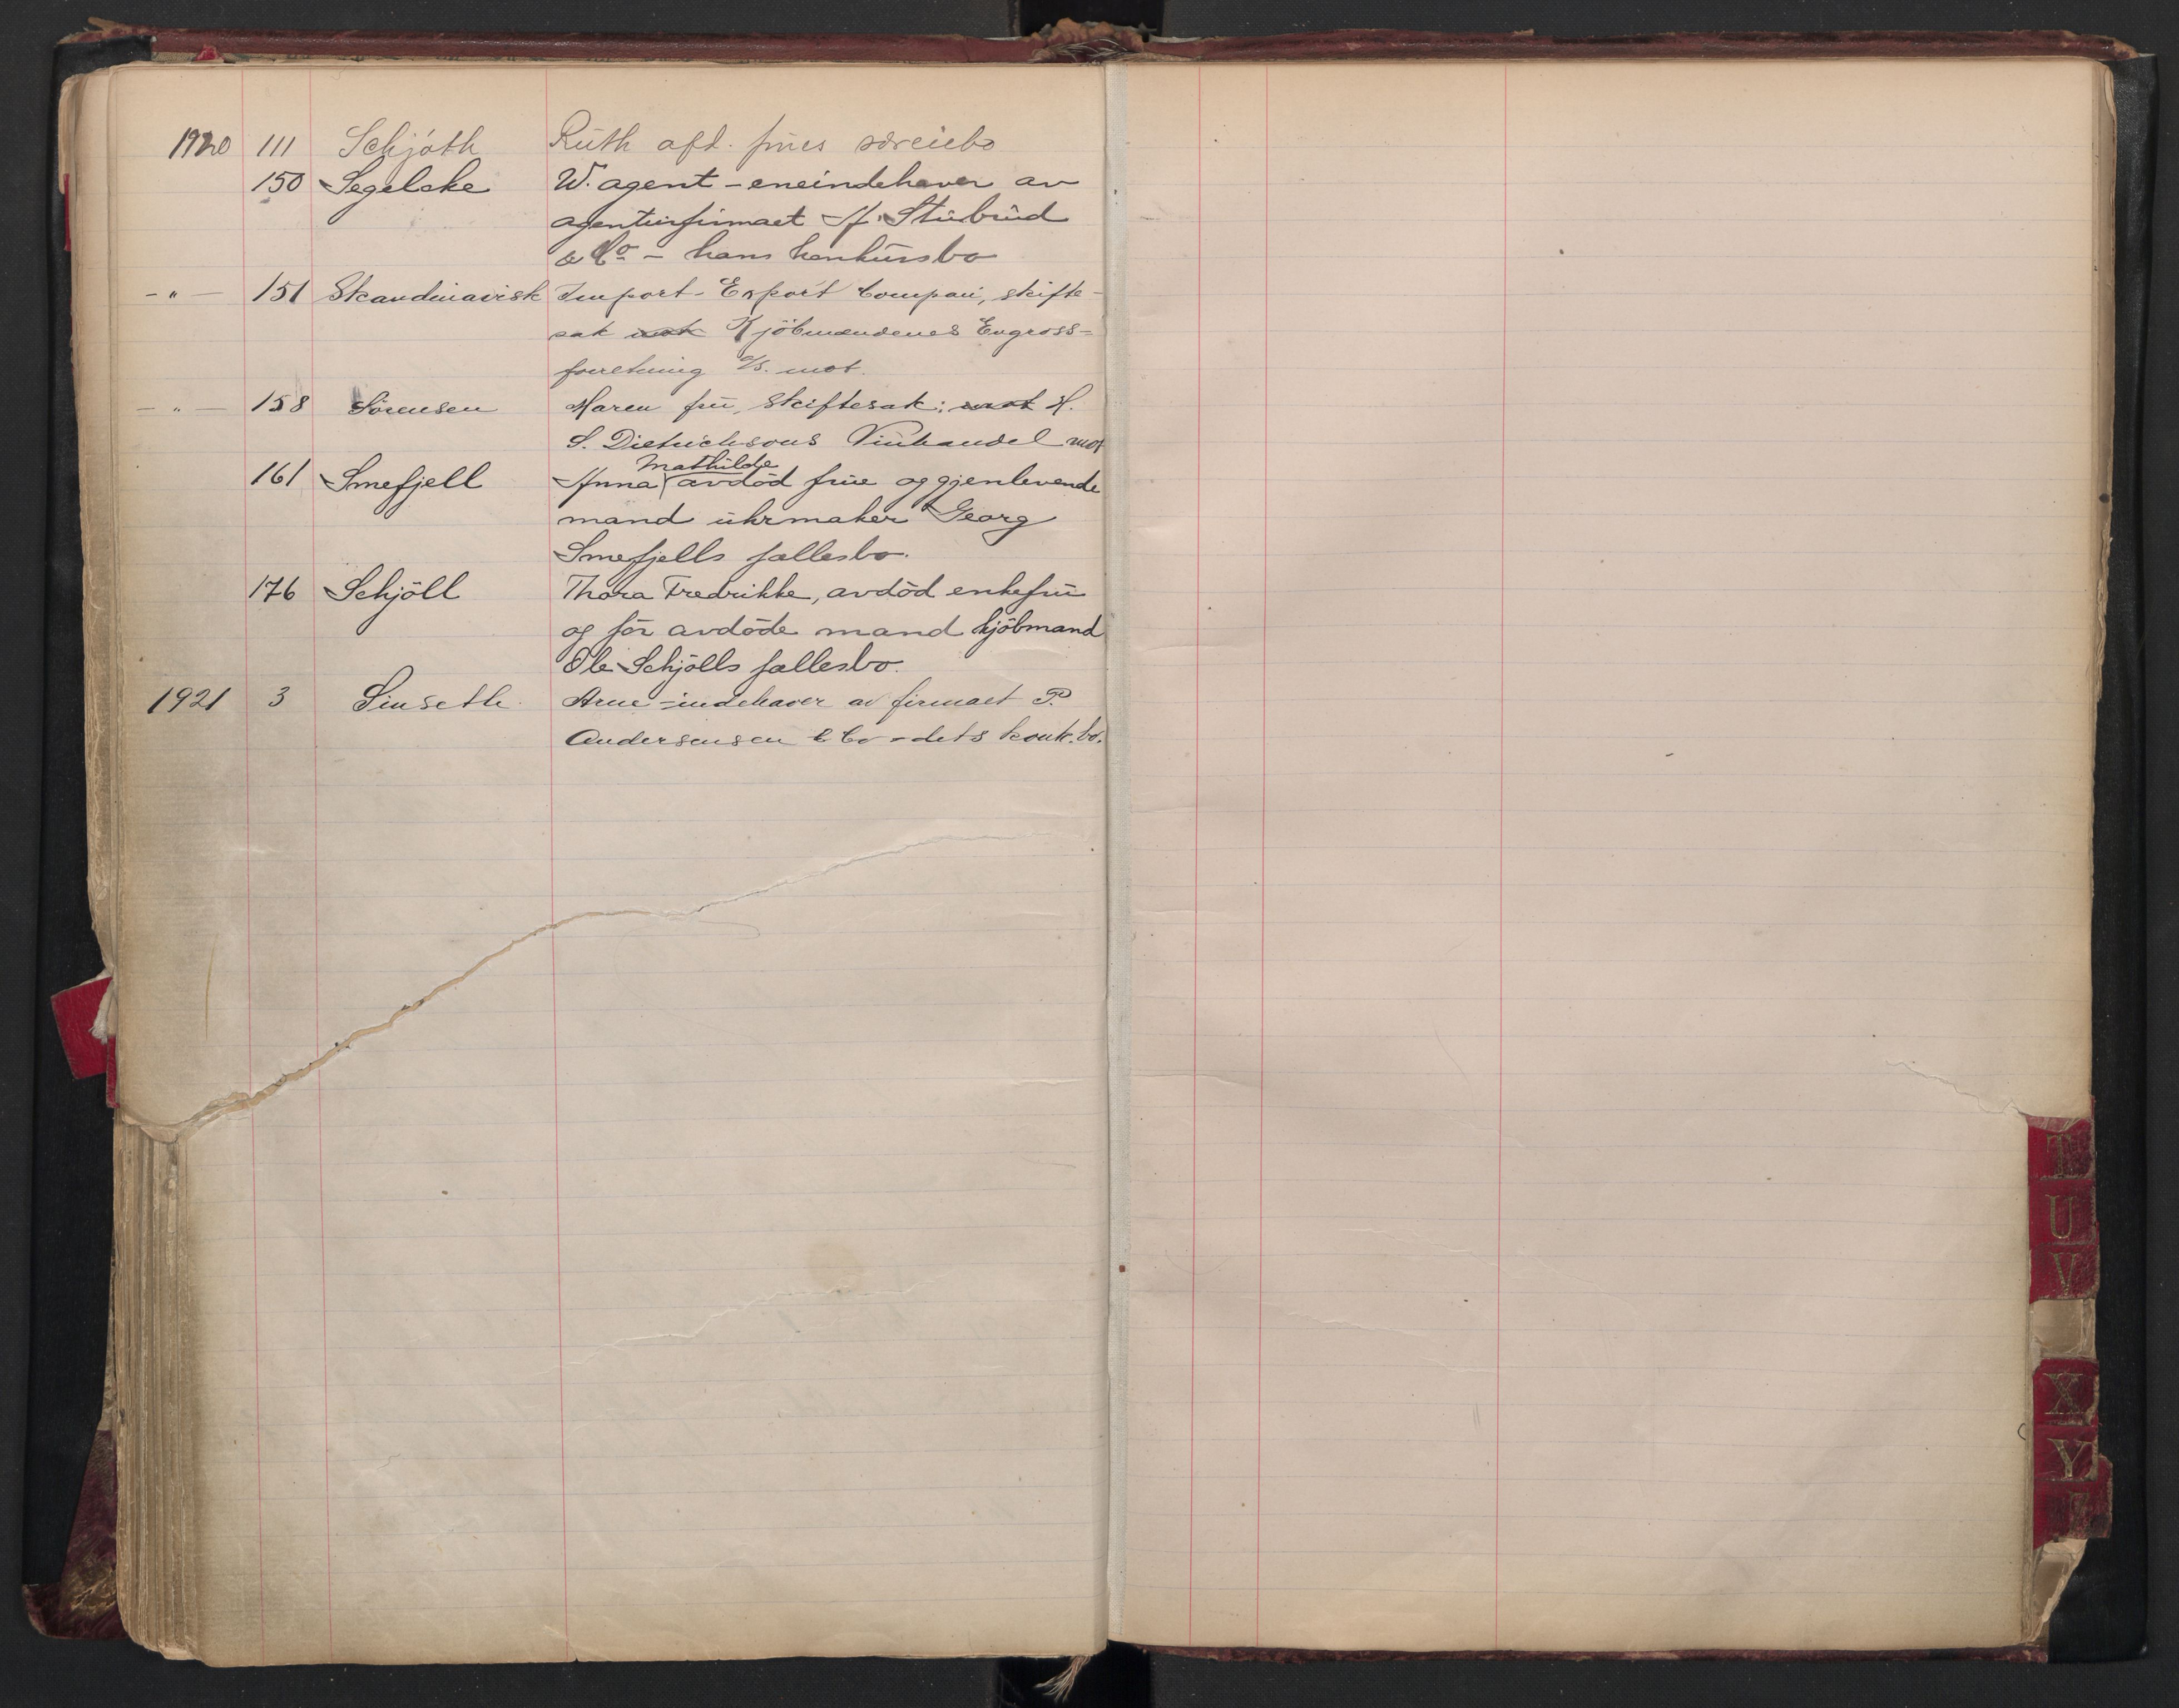 1920 111 Schjøth Ruth afd. frues særeiebo
150 Segelcke W. agent - eneindehaver av
agenturfirmaet A. Stubrud
& Co - hans konkursbo
- " - 151 Skandinavisk Import- Export Compani, skifte-
sak mot Kjöbmændenes Engross-
forretning A/S. mot.
- " - 158 Sörensen Maren fru, skiftesak: mot H.
S. Dietrichsons Vinhandel mot
Mathilde
161 Smefjell Anna avdöd frue og gjenlevende
mand uhrmaker Georg
Smefjells fællesbo.
176 Schjöll Thora Fredrikke, avdöd enkefru
og för avdöde mand kjöbmand
Ole Schjölls fællesbo.
1921 3 Sinseth. Arne - indehaver av firmaet P.
Andersensen & Co - dets konk.bo.
T
U
V
X
Y